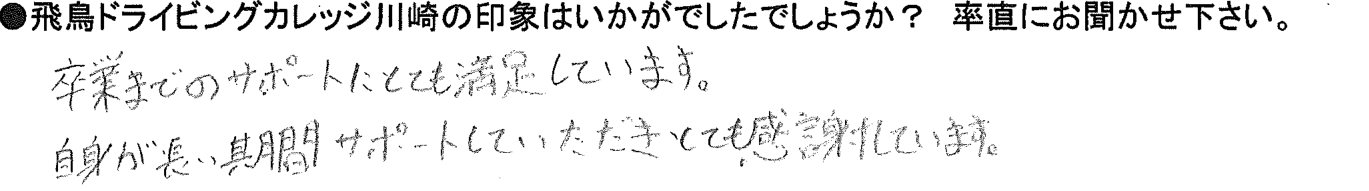 ●飛鳥ドライビングカレッジ川崎の印象はいかがでしたでしょうか？　率直にお聞かせ下さい。
卒業までのサポートにとても満足しています。
自身が長い期間サポートしていただきとても感謝しています。